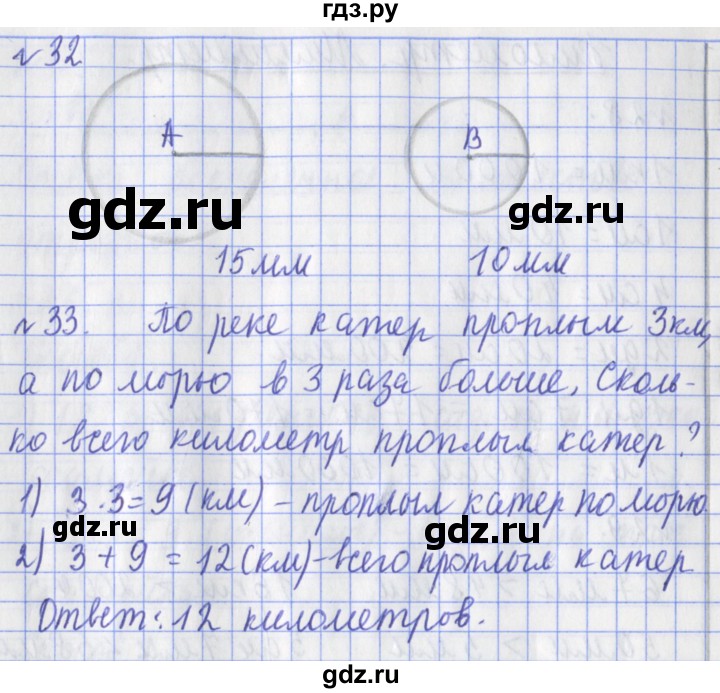 гдз.ру
№32
A B
gdz.ru
gdz.ru
15мм 10мм
№33. По реке катер проплыл 3км,
gdz.ru
а по морю в 3 раза больше, Сколь-
ко всего километр проплыл катер?
1) 3·3=9 (км) – проплыл катер по морю
gdz.ru
gdz.ru
2) 3+9=12 (км) – всего проплыл катер
Ответ: 12 километров.
gdz.ru